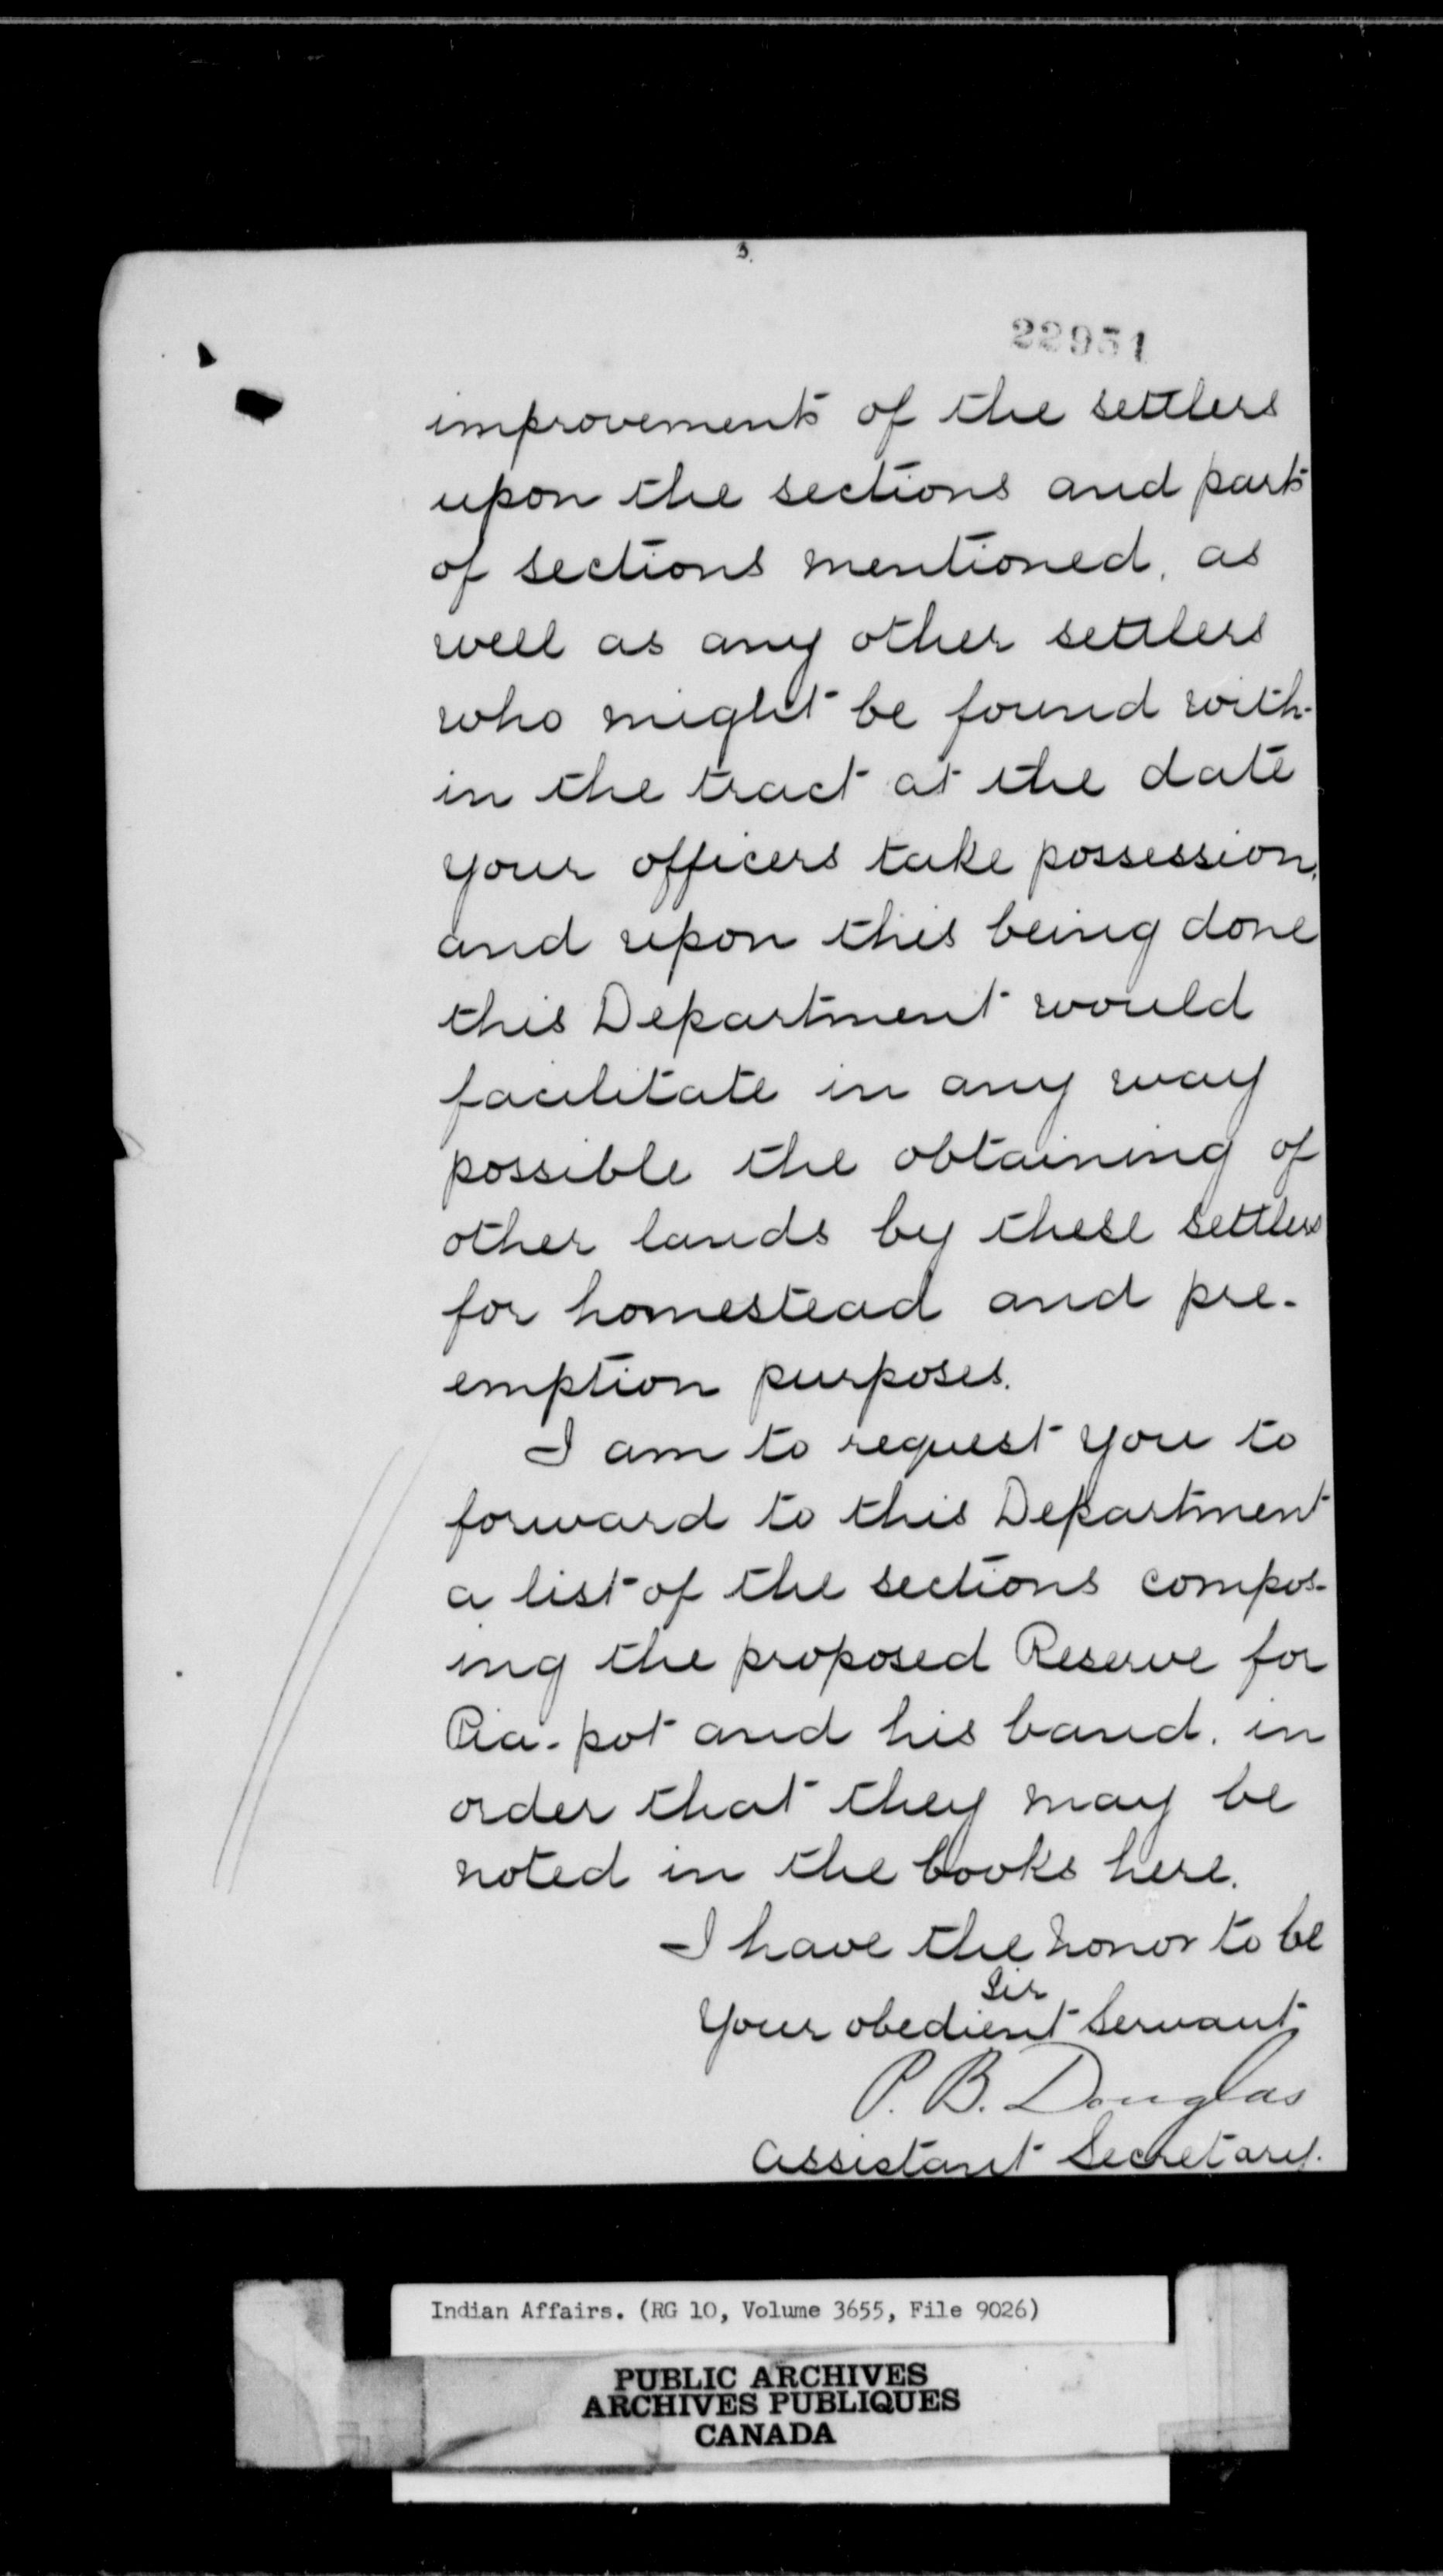 3.
22951
improvements of the settlers
upon the sections and parts
of sections mentioned, as
well as any other settlers
who might be found with-
in the tract at the date
your officers take possession,
and upon this being done
this Department would
facilitate in any way
possible the obtaining of
other lands by these settlers
for homestead and pre-
emption purposes.
I am to request you to
forward to this Department
a list of the sections compos-
ing the proposed Reserve for
Pia-pot and his band, in
order that they may be
noted in the books here.
I have the honor to be
Sir
Your obedient Servant
P. B. Douglas
Assistant Secretary.
Indian Affairs. (RG 10, Volume 3655, File 9026)
PUBLIC ARCHIVES
ARCHIVES PUBLIQUES
CANADA